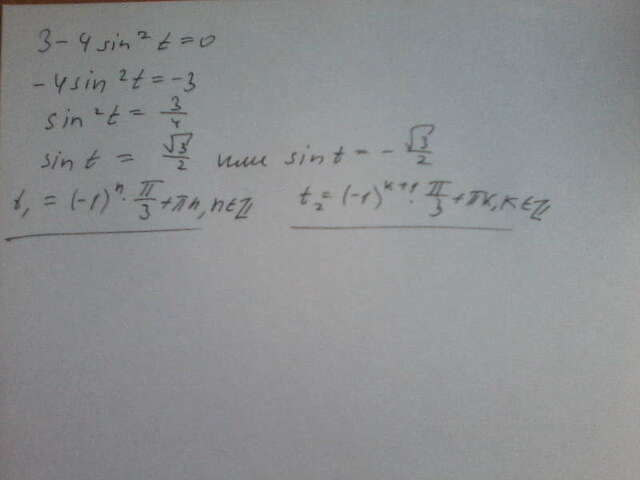 3 - 4 sin² t = 0
- 4 sin² t = -3
sin² t = 3/4
sin t = √3/2 или sin t = - √3/2
t₁ = (-1)ⁿ · π/3 + πn, n ∈ ℤ t₂ = (-1)ᵏ⁺¹ · π/3 + πk, k ∈ ℤ